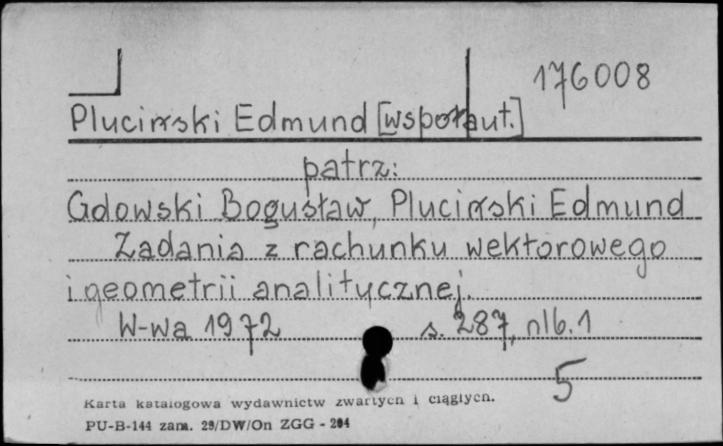 176008
Pluciński Edmund [współaut.]
patrz:
Gdowski Bogusław, Pluciński Edmund
Zadania z rachunku wektorowego
i geometrii analitycznej.
W-wa 1972 s. 287, nlb. 1
5
Karta katalogowa wydawnictw zwartych i ciągłych.
PU-B-144 zam. 29/DW/On ZGG - 204